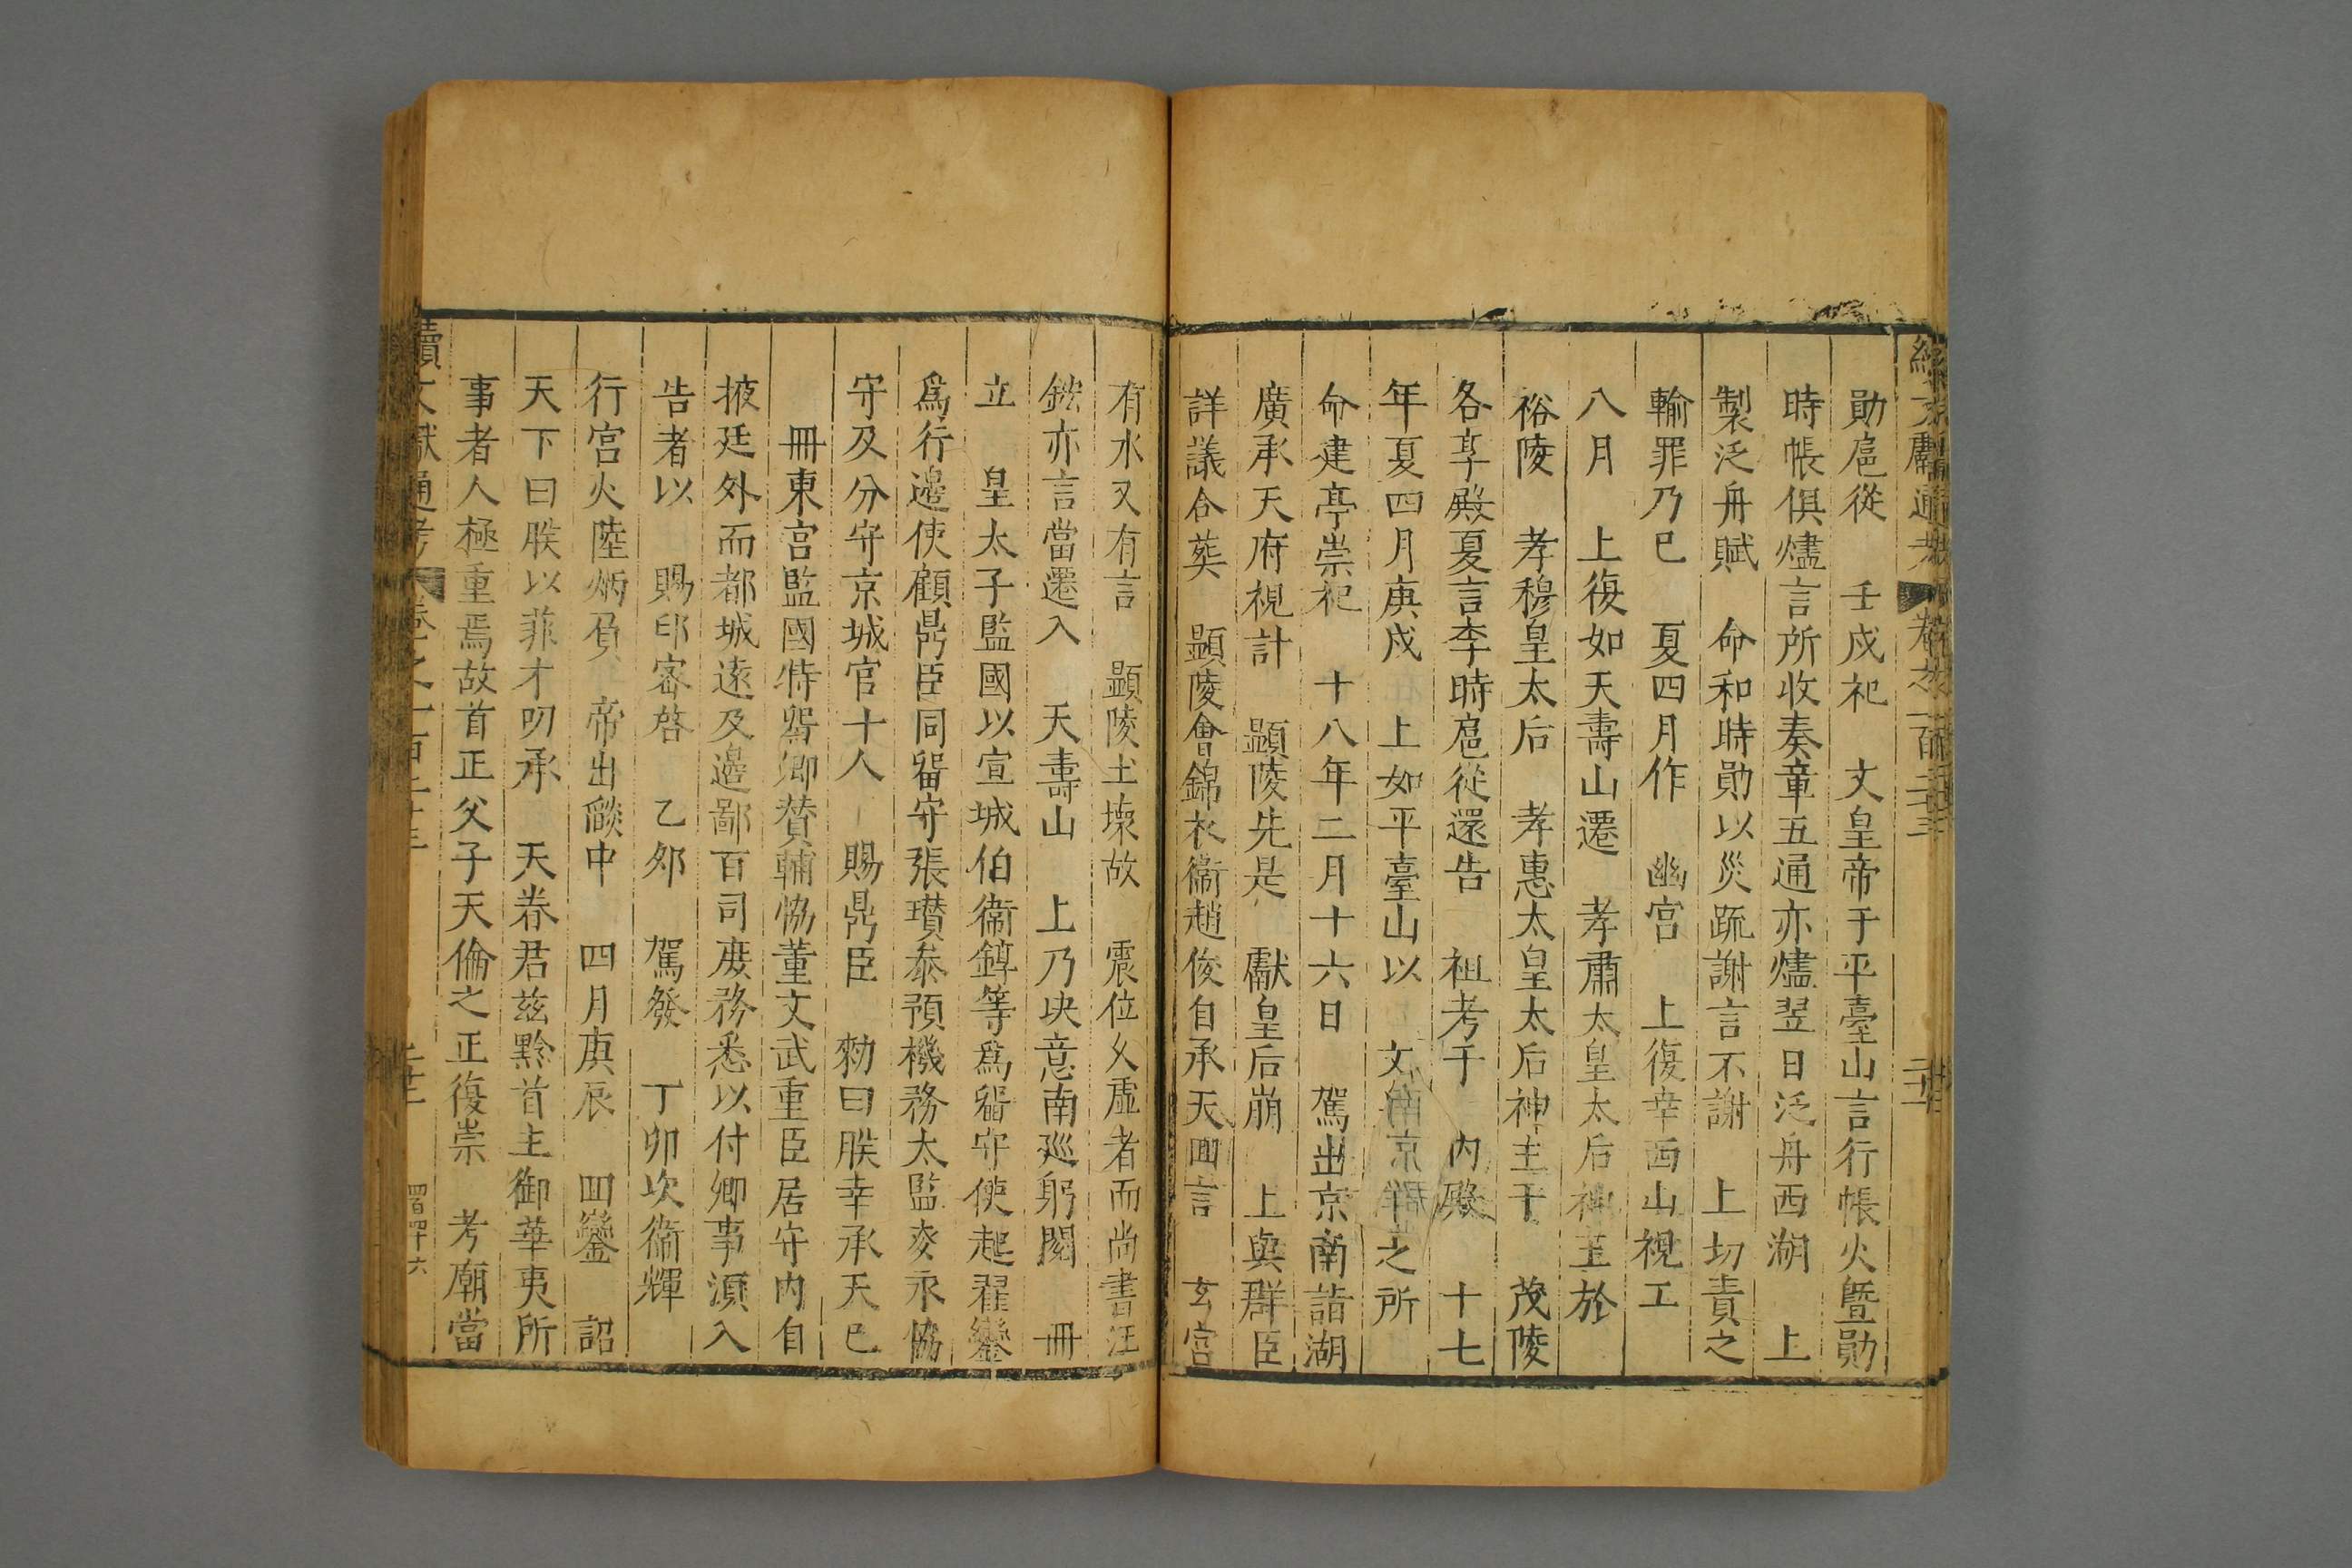 勛扈從　壬戌祀　文皇帝于平臺山言行帳火曁勛
時帳俱燼言所收奏章五通亦燼翌日泛舟西湖　上
製泛舟賦　命和時勛以災疏謝言不謝　上切責之
輸罪乃已　夏四月作　幽宮　上復幸西山視工
八月　上復如天壽山遷　孝肅太皇太后神主於
裕陵　孝穆皇太后　孝惠太皇太后神主于　茂陵
各享殿夏言李時扈從還告　祖考于　内殿　十七
年夏四月庚戌　上如平臺山以　文之所
命建亭崇祀　十八年二月十六日　駕出京南詣湖
廣承天府視計　顯陵先是　獻皇后崩　上與群臣
詳議合葬　顯陵會錦衣衞趙俊自承天囬言　玄宮
有水又有言　顯陵土壞故　震位乆虛者而尚書汪
鋐亦言當遷入　天壽山　上乃决意南廵躬閱　冊
立　皇太子監國以宣城伯衞錞等爲畱守使起翟鑾
爲行邉使顧鼎臣同畱守張瓚叅預機務太監麥永協
守及分守京城官十人　賜鼎臣　勑曰朕幸承天已
冊東宮監國特畱卿賛輔恊董文武重臣居守内自
掖廷外而都城遠及邉鄙百司庻務悉以付卿事湏入
告者以　賜印宻啓　乙夘　駕發　丁卯次衞輝
行宮火陸炳負　帝出燄中　四月庚辰　囬鑾　詔
天下曰朕以菲才叨承　天眷君兹黔首主御華夷所
事者人極重焉故首正父子天倫之正復崇　考廟當
續文獻通考
四百四十六